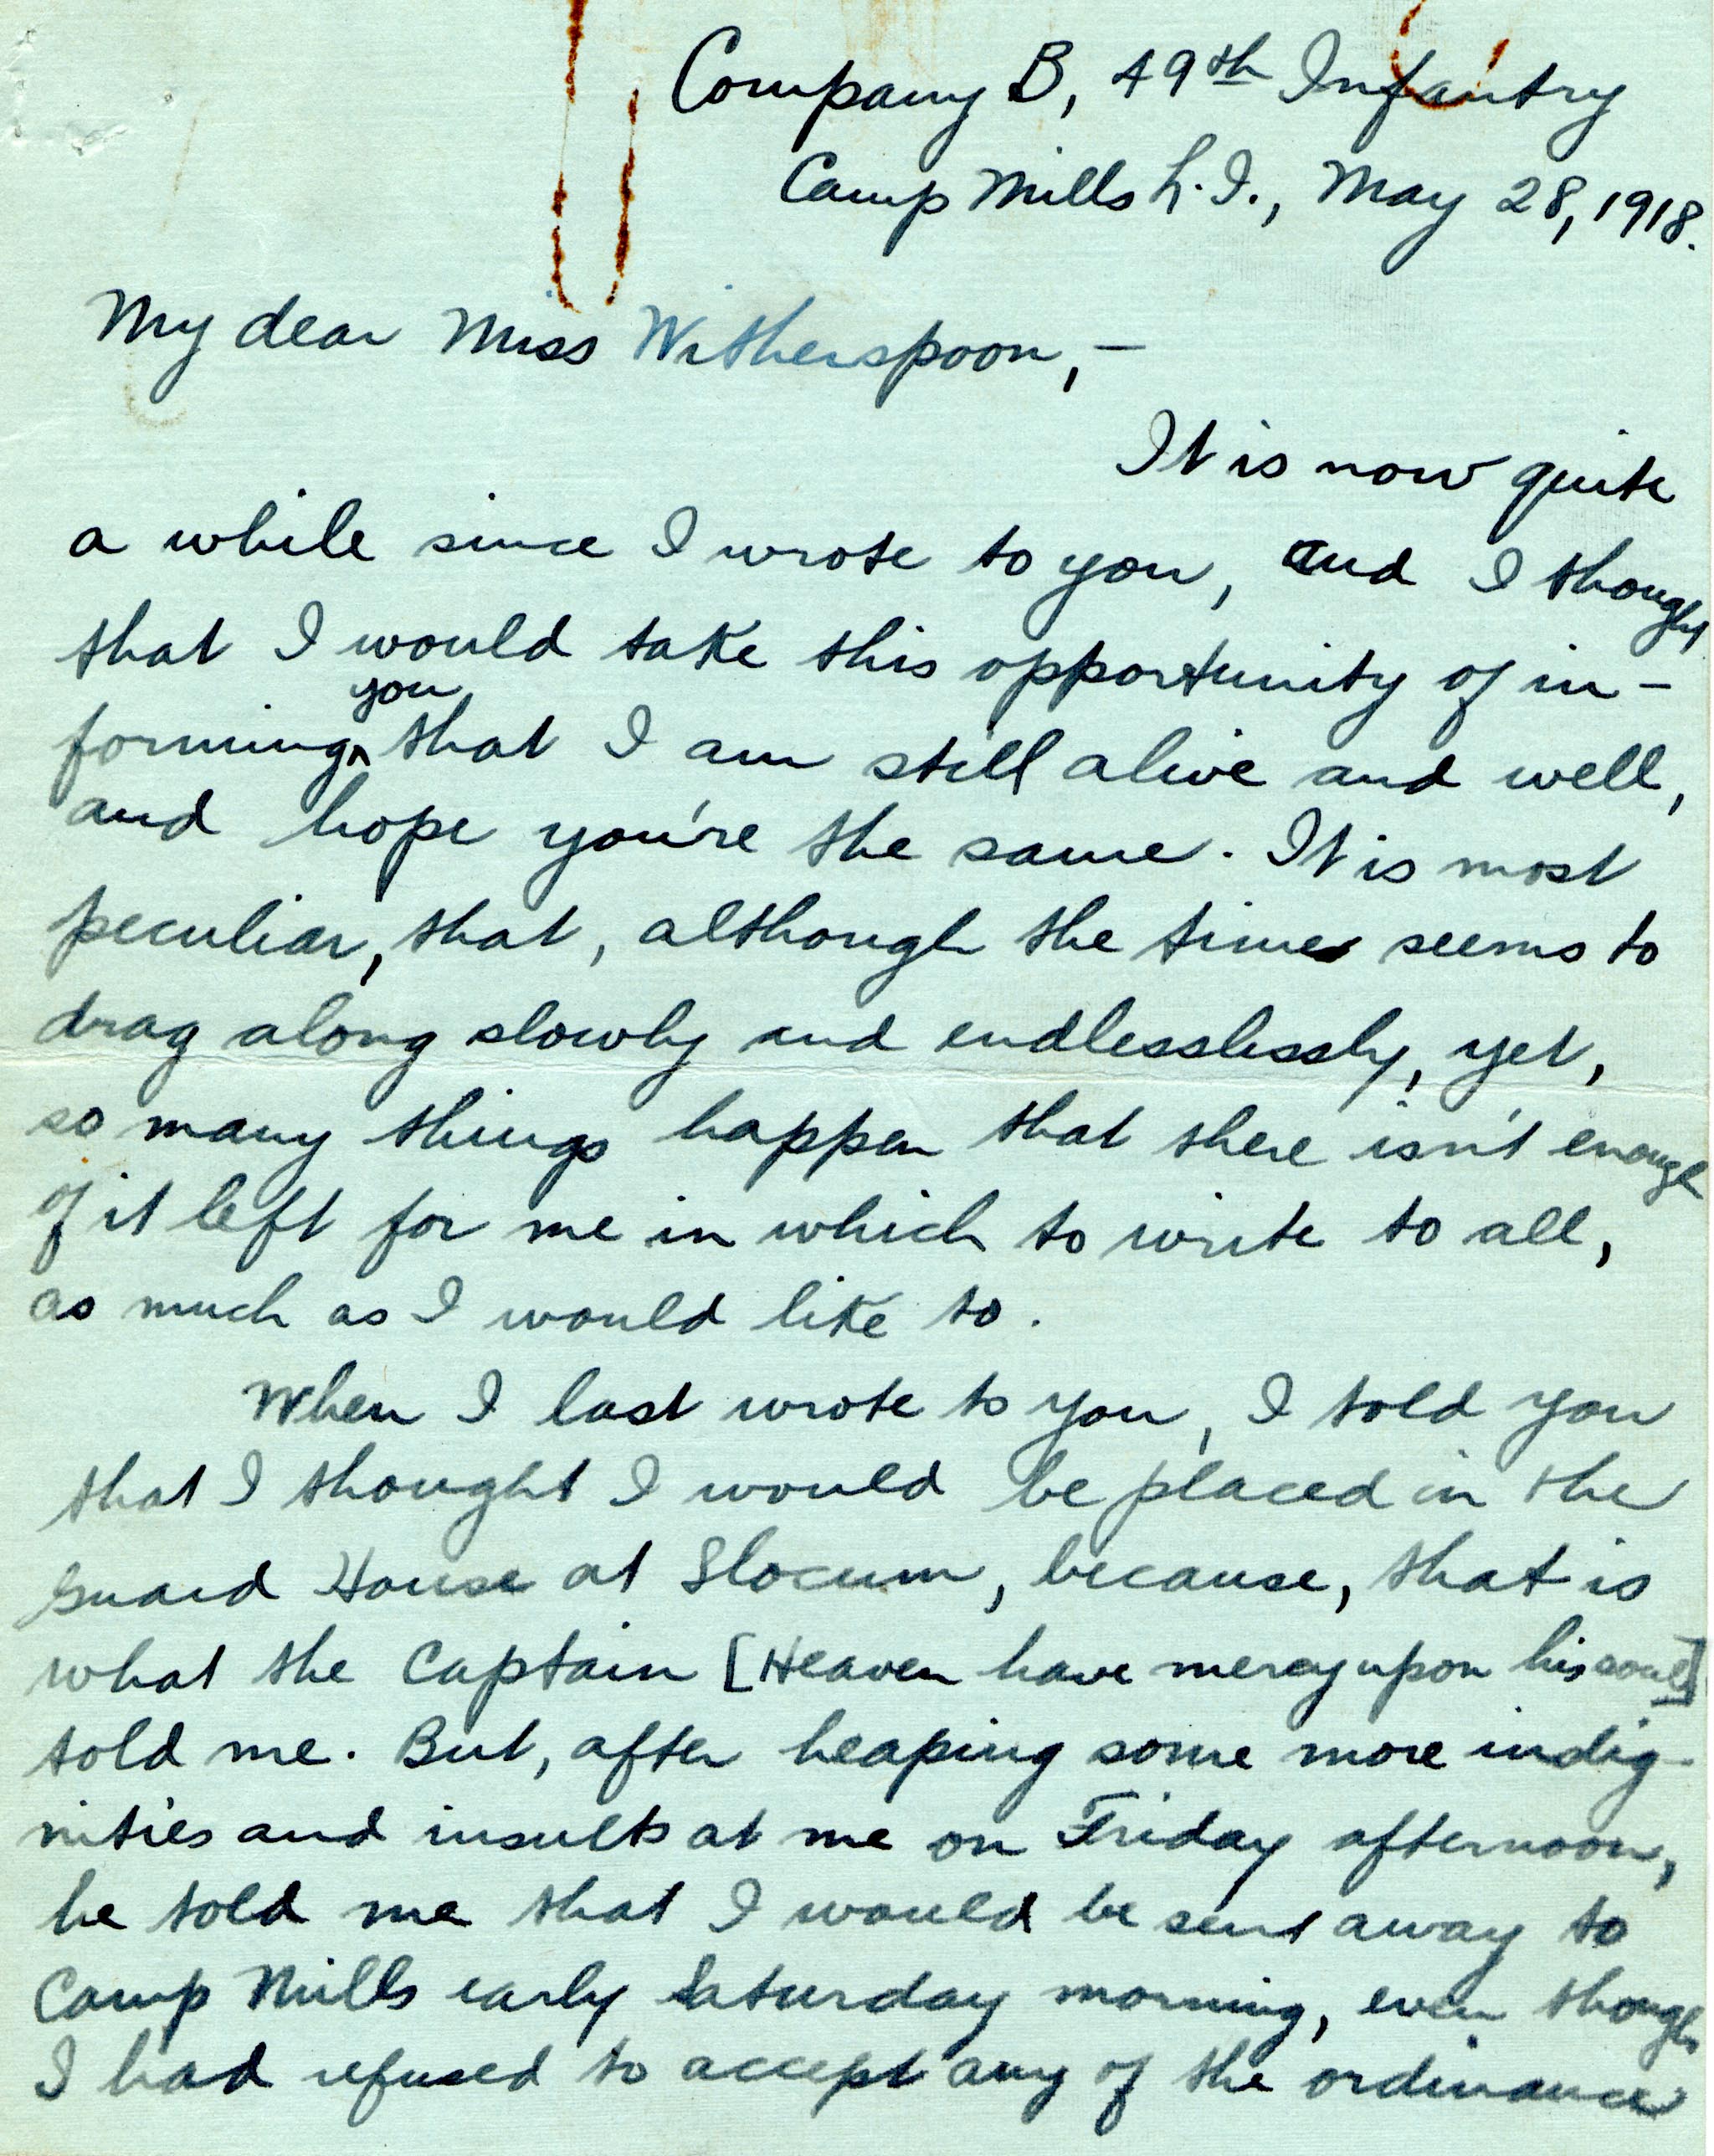 Company B, 49th Infantry
Camp Mills L.I., May 28, 1918.
My dear Miss Witherspoon, –
It is now quite
a while since I wrote to you, and I thought
that I would take this opportunity of in-
you
forming ‸ that I am still alive and well,
and hope you're the same. It is most
peculiar, that, although the time seems to
drag along slowly and endlesslessly, yet,
so many things happen that there isn't enough
of it left for me in which to write to all,
as much as I would like to.
When I last wrote to you, I told you
that I thought I would be placed in the
Guard House at Slocum, because, that is
what the Captain [Heaven have mercy upon his soul]
told me. But, after heaping some more indig-
nities and insults at me on Friday afternoon,
he told me that I would be sent away to
Camp Mills early Saturday morning, even though
I had refused to accept any of the ordinance